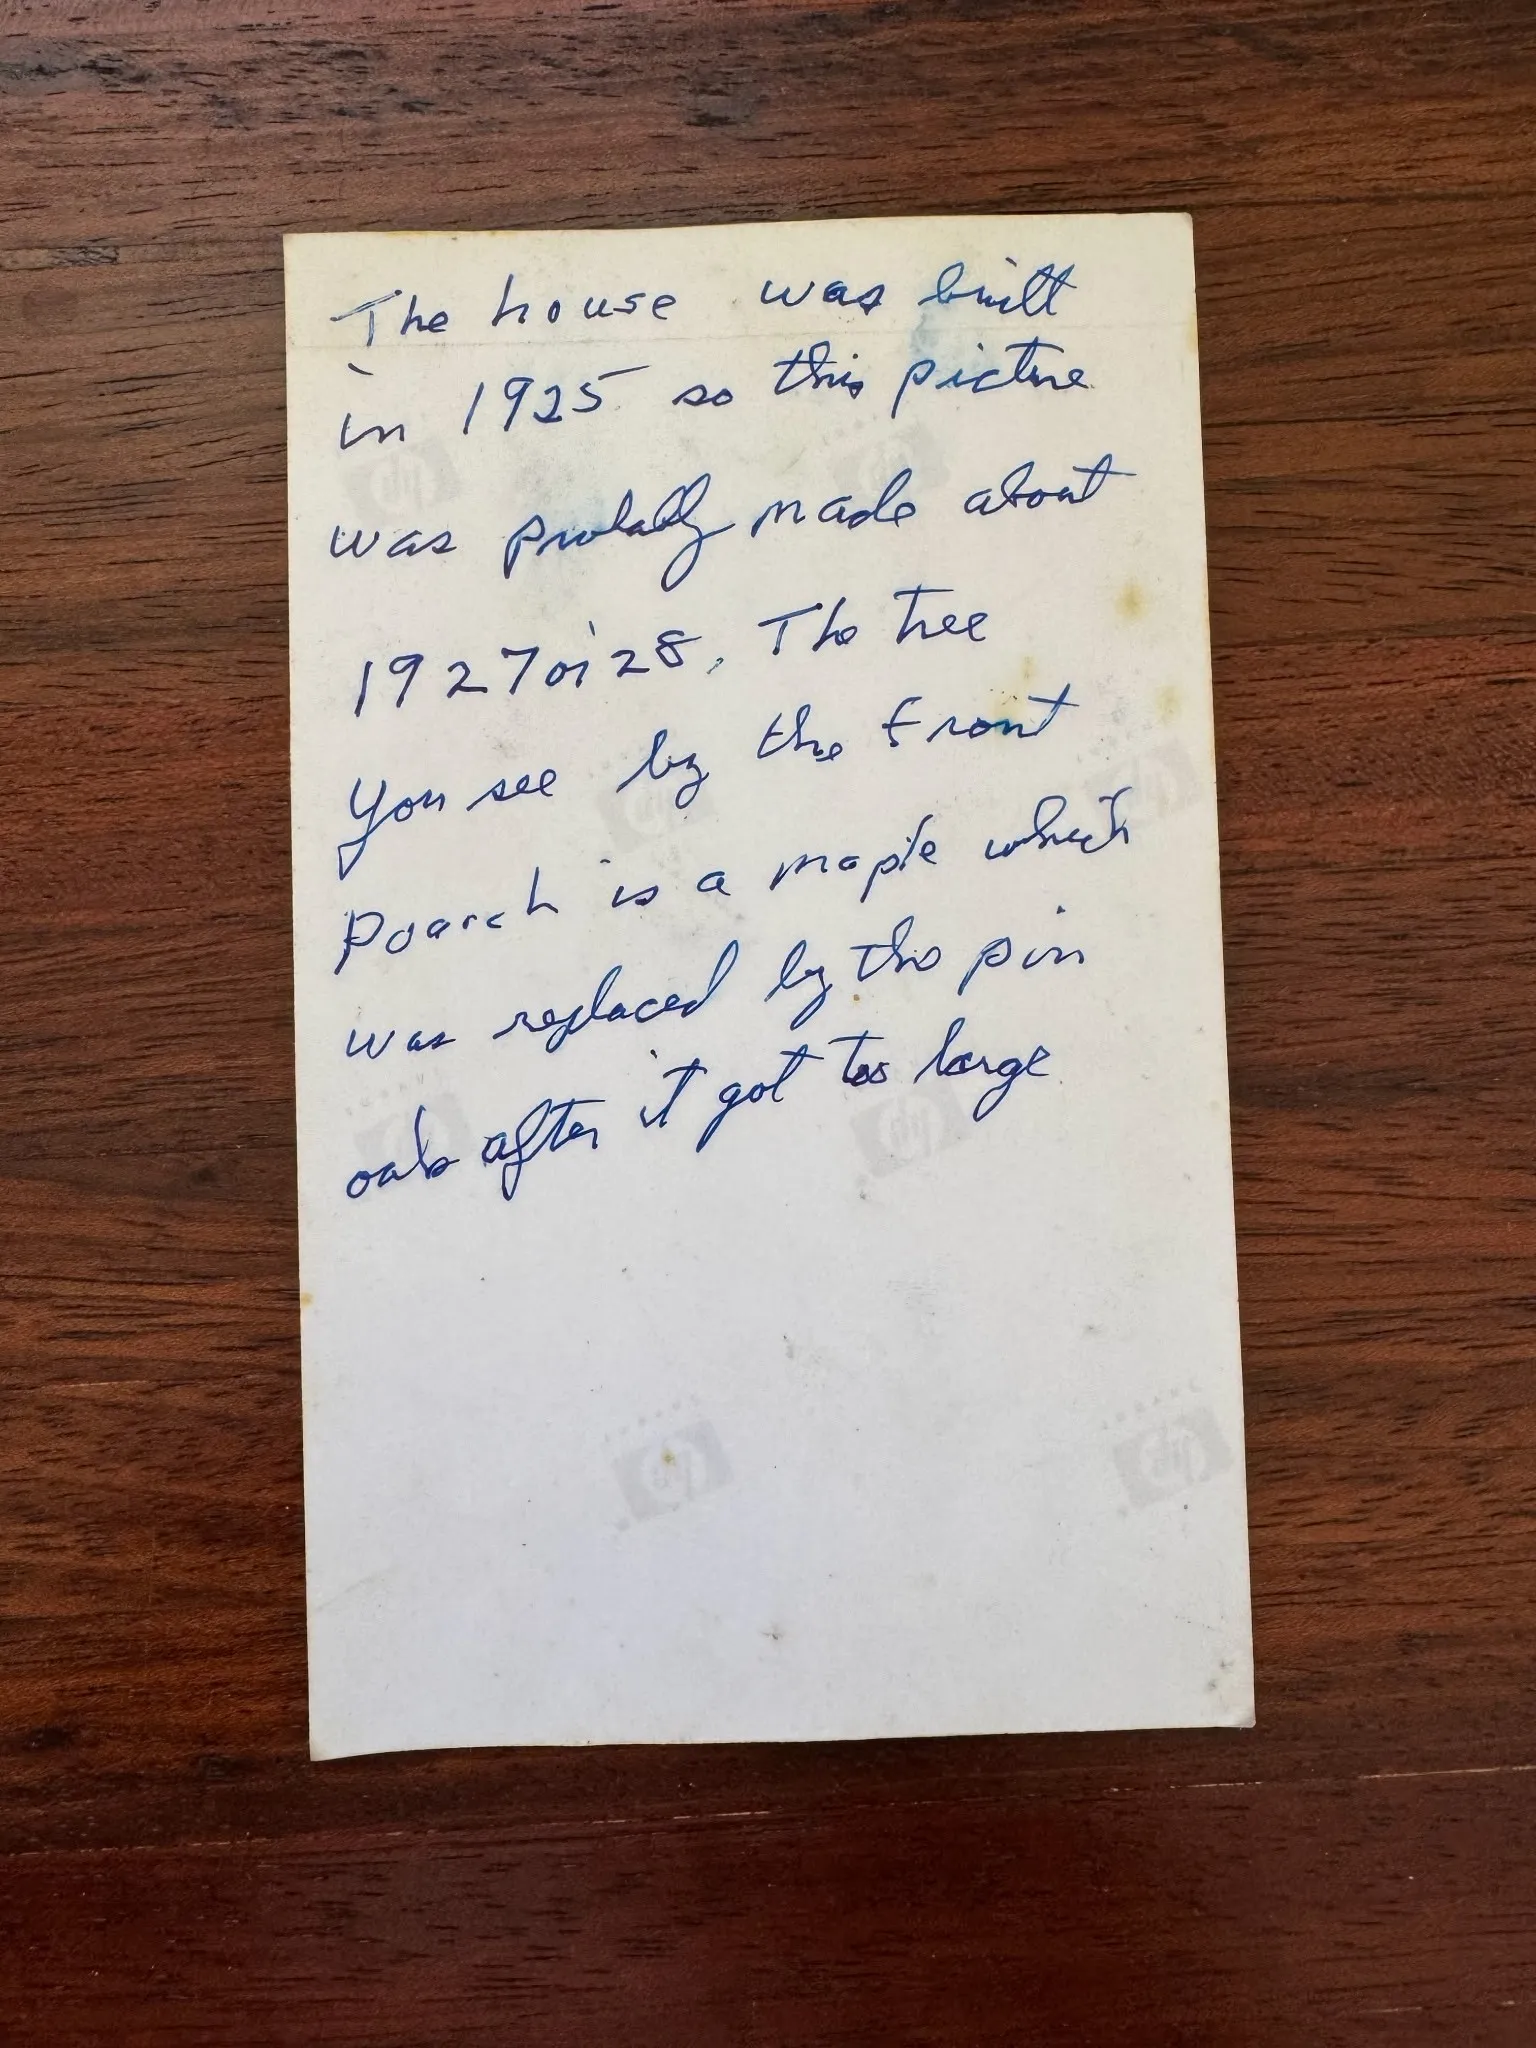 The house was built
in 1925 so this picture
was probally made about
1927 or 28. The tree
you see by the front
Poarch is a maple which
was replaced by the pin
oak after it got too large